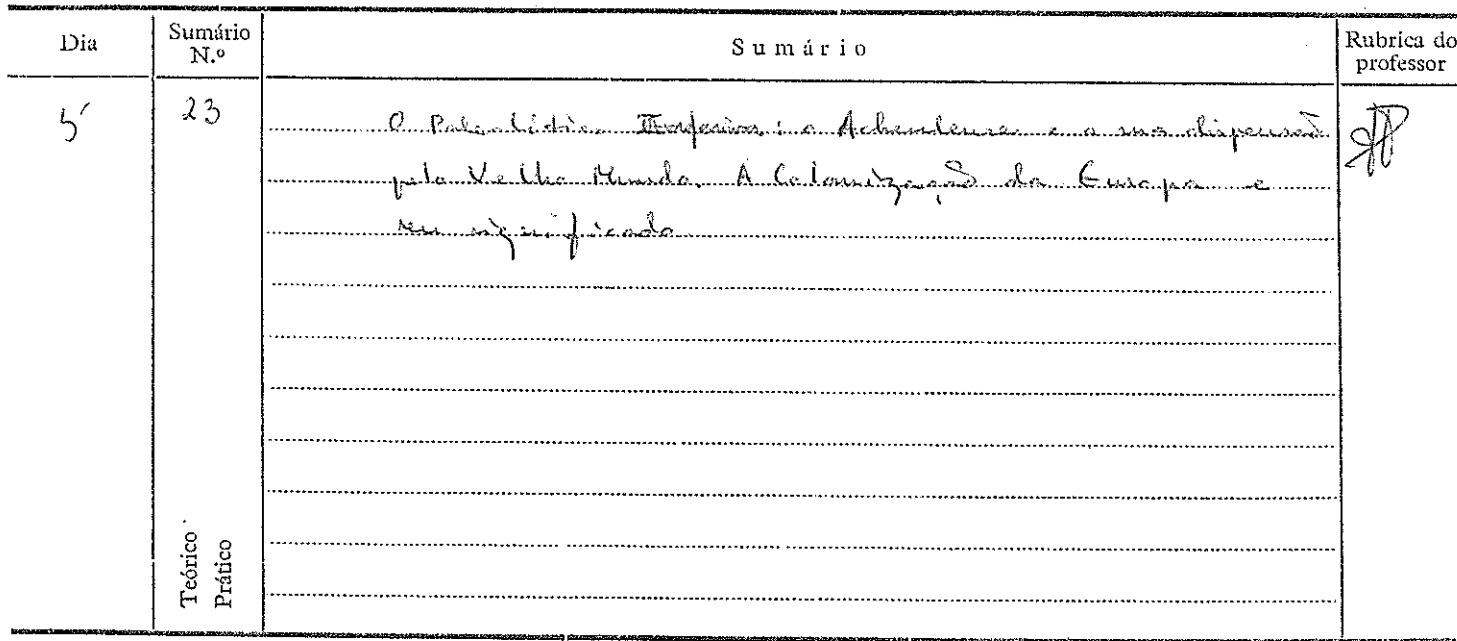 Dia
Sumário N.º
Sumário
Rubrica do professor
5
23
O Paleolítico Inferior: o Acheulense e a sua dispersão
pelo Velho Mundo. A Colonização da Europa e
seu significado
Teórico
Prático